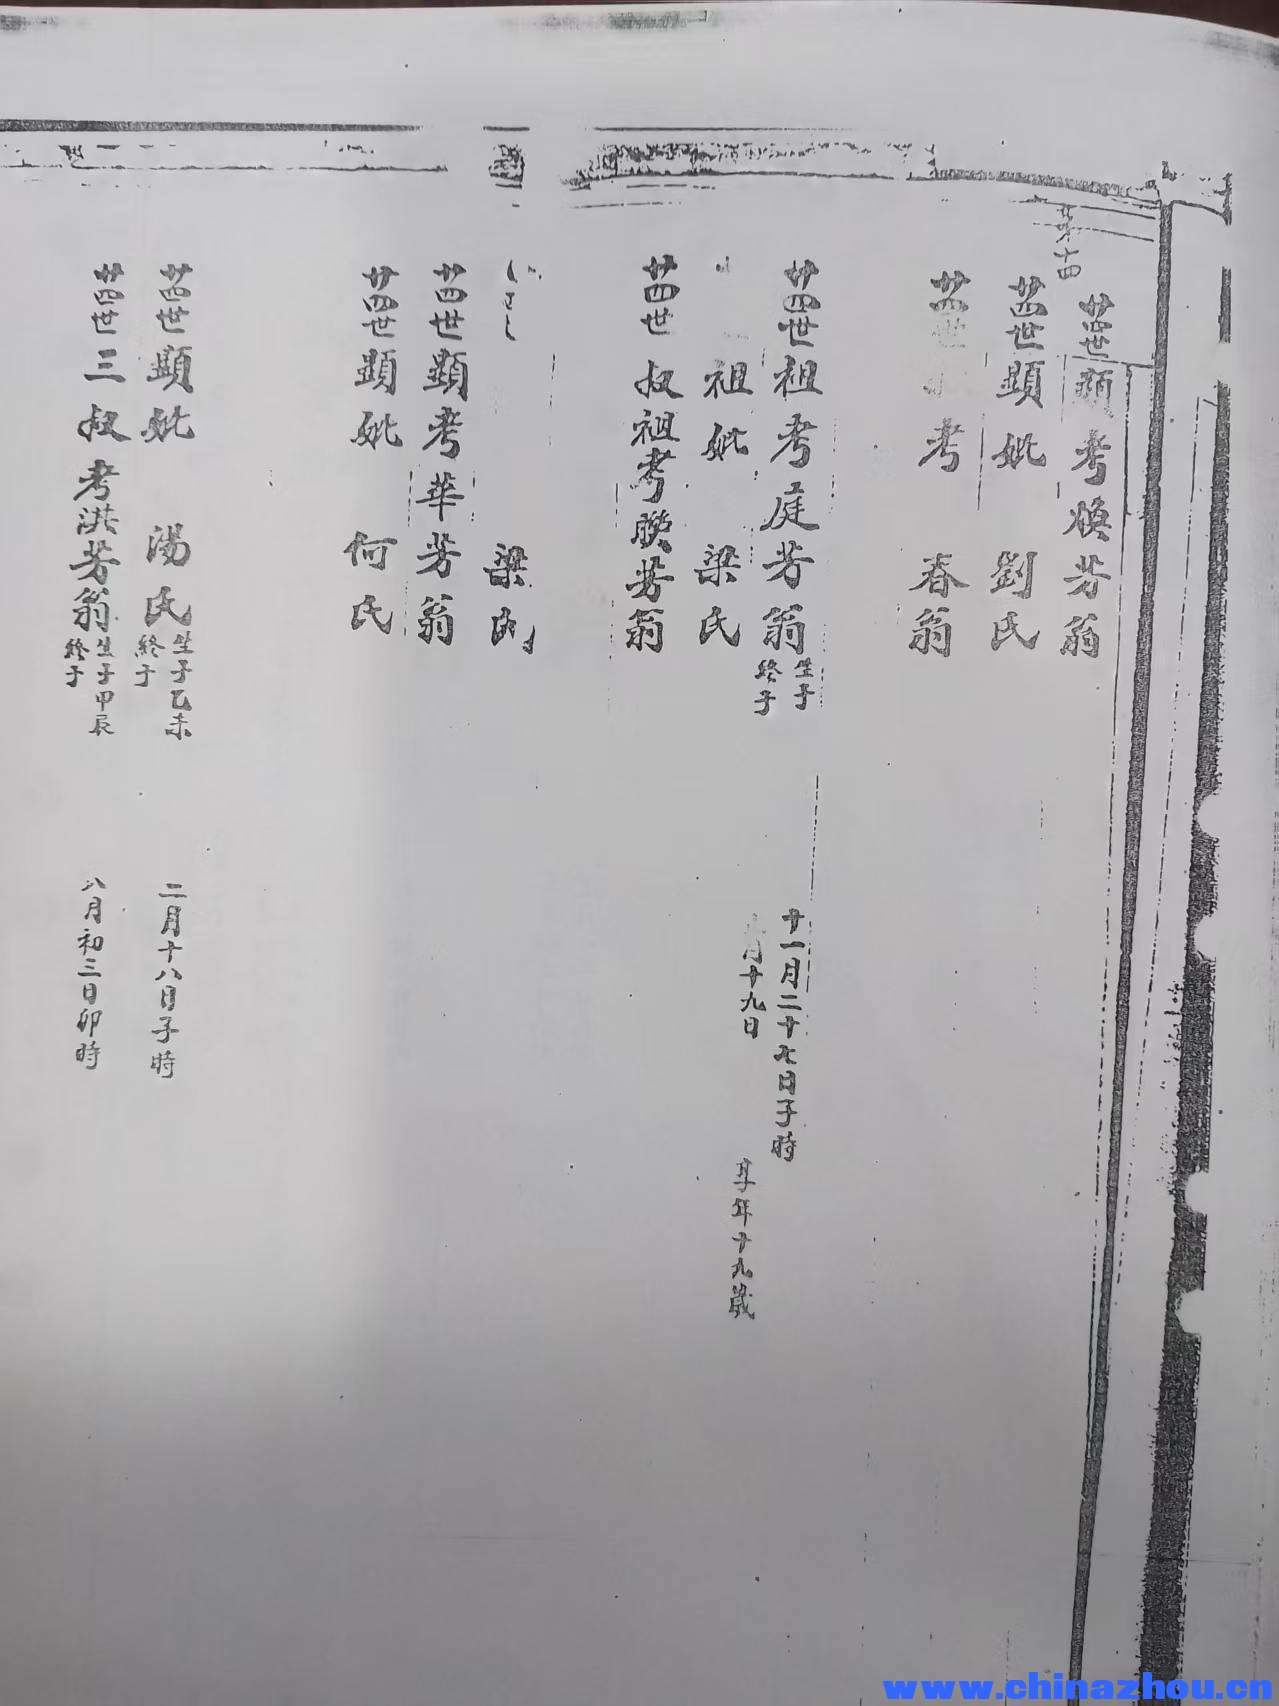 廿四世顯考煥芳翁
廿四世顯妣 劉氏
廿四世 考 春翁
廿四世祖考庭芳翁 生于 十一月二十七日子時
終于 月十九日 享年十九歲
祖妣 梁氏
廿四世 叔祖考聯芳翁
梁氏
廿四世顯考華芳翁
廿四世顯妣 何氏
廿四世顯妣 湯氏 生于乙未 二月十八日子時
終于
廿四世三叔考洪芳翁 生于甲辰 八月初三日卯時
終于
www.chinazhou.cn